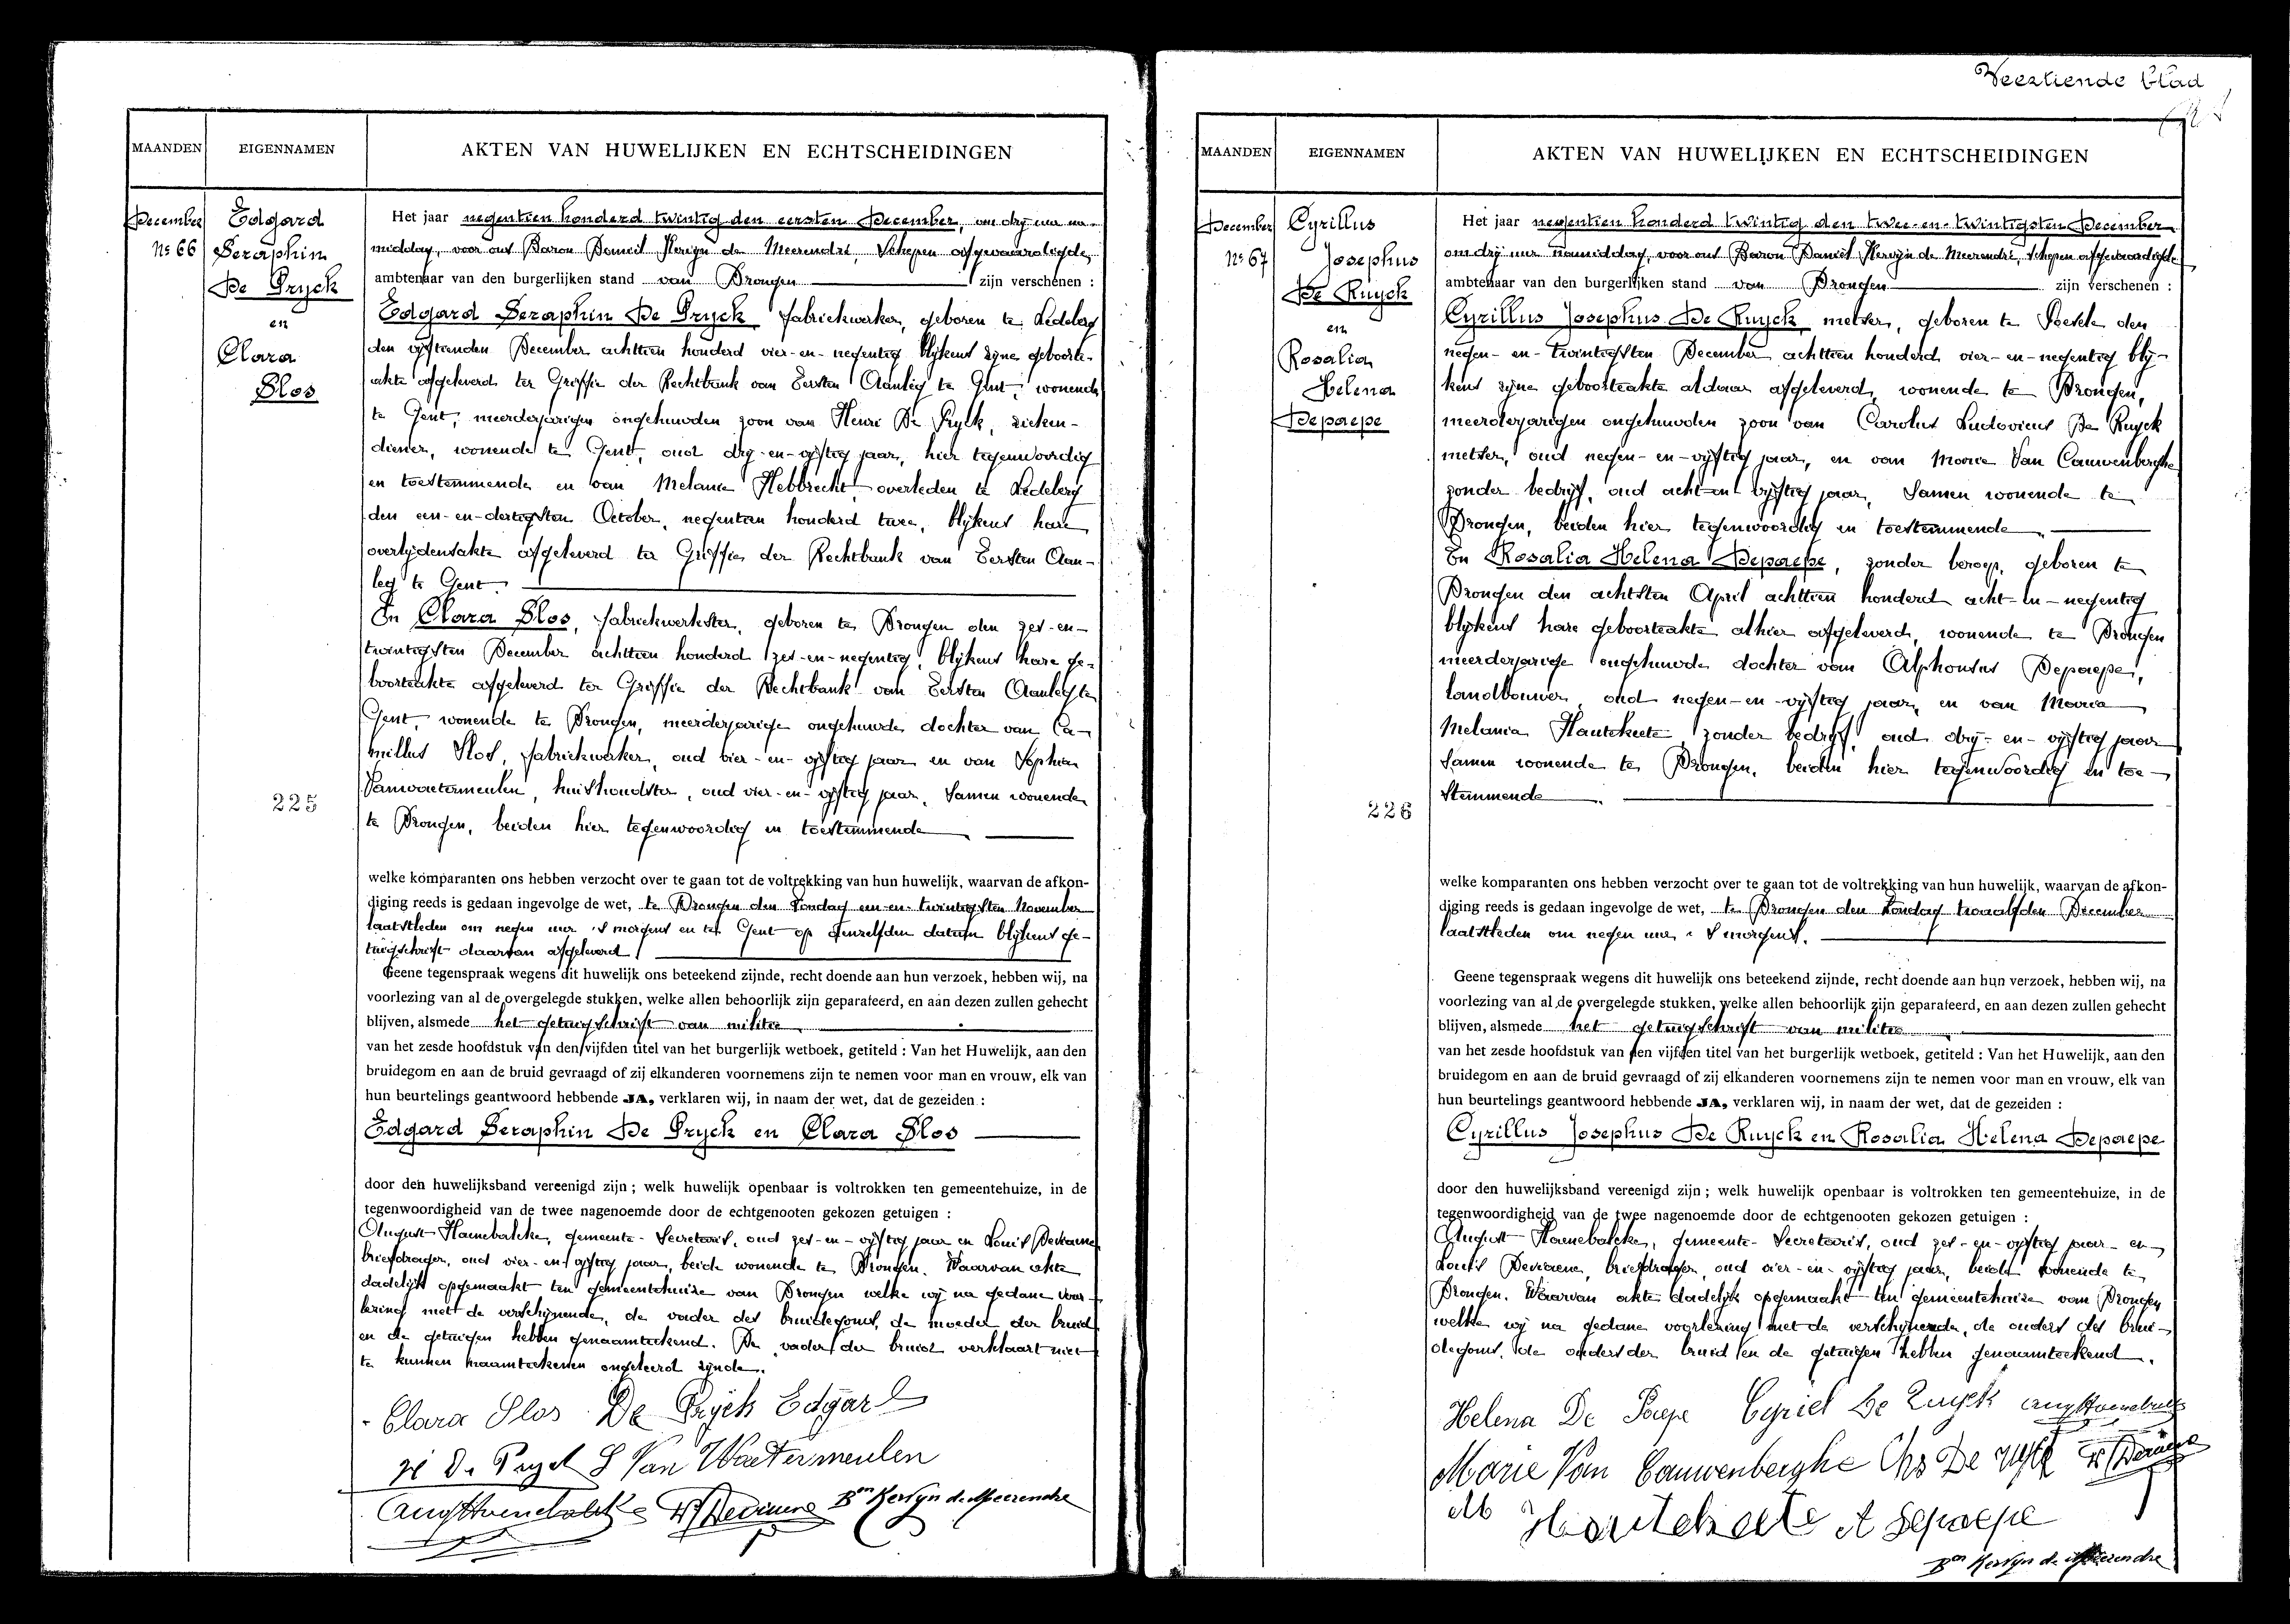 MAANDEN
EIGENNAMEN
AKTEN VAN HUWELIJKEN EN ECHTSCHEIDINGEN
December
Nº 66
Edgard
Seraphin
De Pryck
en
Clara
Slos
225
Het jaar negentien honderd twintig den eersten December, om drij uur na-
middag, voor ons Baron Daniël Kervyn de Meerendré, Schepen afgevaardigde
ambtenaar van den burgerlijken stand van Drongen zijn verschenen :
Edgard Seraphin De Pryck fabriekwerker, geboren te Ledeberg
den vijftienden December achttien honderd vier-en-negentig blijkens zijne geboorte-
akte afgeleverd ter Griffie der Rechtbank van Eersten Aanleg te Gent, wonende
te Gent, meerderjarigen ongehuwden zoon van Henri De Pryck, zieken-
diener, wonende te Gent, oud drij-en-vijftig jaar, hier tegenwoordig
en toestemmende en van Melanie Hebbrecht overleden te Ledeberg
den een-en-dertigsten October, negentien honderd twee, blijkens hare
overlijdensakte afgeleverd ter Griffie der Rechtbank van Eersten Aan-
leg te Gent.
En Clara Slos, fabriekwerkster, geboren te Drongen den zes-en-
twintigsten December achttien honderd zes-en-negentig, blijkens hare ge-
boorteakte afgeleverd ter Griffie der Rechtbank van Eersten Aanleg te
Gent, wonende te Drongen, meerderjarige ongehuwde dochter van Ca-
millus Slos, fabriekwerker, oud vier-en-vijftig jaar en van Sophia
Vanwatermeulen, huishoudster, oud vier-en-vijftig jaar, samen wonende
te Drongen, beiden hier tegenwoordig en toestemmende
welke komparanten ons hebben verzocht over te gaan tot de voltrekking van hun huwelijk, waarvan de afkon-
diging reeds is gedaan ingevolge de wet, te Drongen den Zondag een-en-twintigsten November
laatstleden om negen uur 's morgens en te Gent op denzelfden datum blijkens ge-
tuigschrift daarvan afgeleverd.
Geene tegenspraak wegens dit huwelijk ons beteekend zijnde, recht doende aan hun verzoek, hebben wij, na
voorlezing van al de overgelegde stukken, welke allen behoorlijk zijn geparafeerd, en aan dezen zullen gehecht
blijven, alsmede het getuigschrift van militie
van het zesde hoofdstuk van den vijfden titel van het burgerlijk wetboek, getiteld : Van het Huwelijk, aan den
bruidegom en aan de bruid gevraagd of zij elkanderen voornemens zijn te nemen voor man en vrouw, elk van
hun beurtelings geantwoord hebbende JA, verklaren wij, in naam der wet, dat de gezeiden :
Edgard Seraphin De Pryck en Clara Slos
door den huwelijksband vereenigd zijn ; welk huwelijk openbaar is voltrokken ten gemeentehuize, in de
tegenwoordigheid van de twee nagenoemde door de echtgenooten gekozen getuigen :
August Haenebalcke, gemeente-Secretaris, oud zes-en-vijftig jaar en Louis Deviaene
briefdrager, oud vier-en-vijftig jaar, beide wonende te Drongen. Waarvan akte
dadelijk opgemaakt ten gemeentehuize van Drongen welke wij na gedane voor-
lezing met de verschijnende, de vader des bruidegoms, de moeder der bruid
en de getuigen hebben genaamteekend. De vader der bruid verklaart niet
te kunnen naamteekenen ongeleerd zijnde.
Clara Slos De Pryck Edgard
H De Pryck S Van Watermeulen
Aug Haenebalcke L Deviaene Bon Kervyn de Meerendre
Veertiende blad
MAANDEN
EIGENNAMEN
AKTEN VAN HUWELIJKEN EN ECHTSCHEIDINGEN
December
Nº 67
Cyrillus
Josephus
De Ruyck
en
Rosalia
Helena
Depaepe
226
Het jaar negentien honderd twintig den twee-en-twintigsten December
om drij uur namiddag, voor ons Baron Daniël Kervyn de Meerendré, Schepen afgevaardigde
ambtenaar van den burgerlijken stand van Drongen zijn verschenen :
Cyrillus Josephus De Ruyck metser, geboren te Poesele den
negen-en-twintigsten December achttien honderd vier-en-negentig blij-
kens zijne geboorteakte aldaar afgeleverd, wonende te Drongen,
meerderjarigen ongehuwden zoon van Carolus Ludovicus De Ruyck
metser, oud negen-en-vijftig jaar, en van Maria Van Cauwenberghe
zonder bedrijf, oud acht-en-vijftig jaar, samen wonende te
Drongen, beiden hier tegenwoordig en toestemmende
En Rosalia Helena Depaepe, zonder beroep, geboren te
Drongen den achtsten April achttien honderd acht-en-negentig
blijkens hare geboorteakte alhier afgeleverd, wonende te Drongen
meerderjarige ongehuwde dochter van Alphonsus Depaepe,
landbouwer, oud negen-en-vijftig jaar, en van Maria
Melania Hautekeete, zonder bedrijf, oud drij-en-vijftig jaar
samen wonende te Drongen, beiden hier tegenwoordig en toe-
stemmende.
welke komparanten ons hebben verzocht over te gaan tot de voltrekking van hun huwelijk, waarvan de afkon-
diging reeds is gedaan ingevolge de wet, te Drongen den Zondag twaalfden December
laatstleden om negen uur 's morgens.
Geene tegenspraak wegens dit huwelijk ons beteekend zijnde, recht doende aan hun verzoek, hebben wij, na
voorlezing van al de overgelegde stukken, welke allen behoorlijk zijn geparafeerd, en aan dezen zullen gehecht
blijven, alsmede het getuigschrift van militie
van het zesde hoofdstuk van den vijfden titel van het burgerlijk wetboek, getiteld : Van het Huwelijk, aan den
bruidegom en aan de bruid gevraagd of zij elkanderen voornemens zijn te nemen voor man en vrouw, elk van
hun beurtelings geantwoord hebbende JA, verklaren wij, in naam der wet, dat de gezeiden :
Cyrillus Josephus De Ruyck en Rosalia Helena Depaepe
door den huwelijksband vereenigd zijn ; welk huwelijk openbaar is voltrokken ten gemeentehuize, in de
tegenwoordigheid van de twee nagenoemde door de echtgenooten gekozen getuigen :
August Haenebalcke, gemeente-Secretaris, oud zes-en-vijftig jaar en
Louis Deviaene, briefdrager, oud vier-en-vijftig jaar, beide wonende te
Drongen. Waarvan akte dadelijk opgemaakt ten gemeentehuize van Drongen
welke wij na gedane voorlezing met de verschijnende, de ouders des brui-
degoms, de ouders der bruid en de getuigen hebben genaamteekend.
Helena De Paepe Cyriel De Ruyck Aug Haenebalcke
Marie Van Cauwenberghe Chs De Ruyck L Deviaene
M Hautekeete A Depaepe
Bon Kervyn de Meerendre